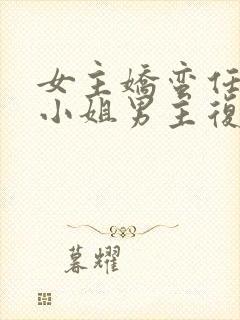 女主嬌蛮任
小姐男主復
暮耀